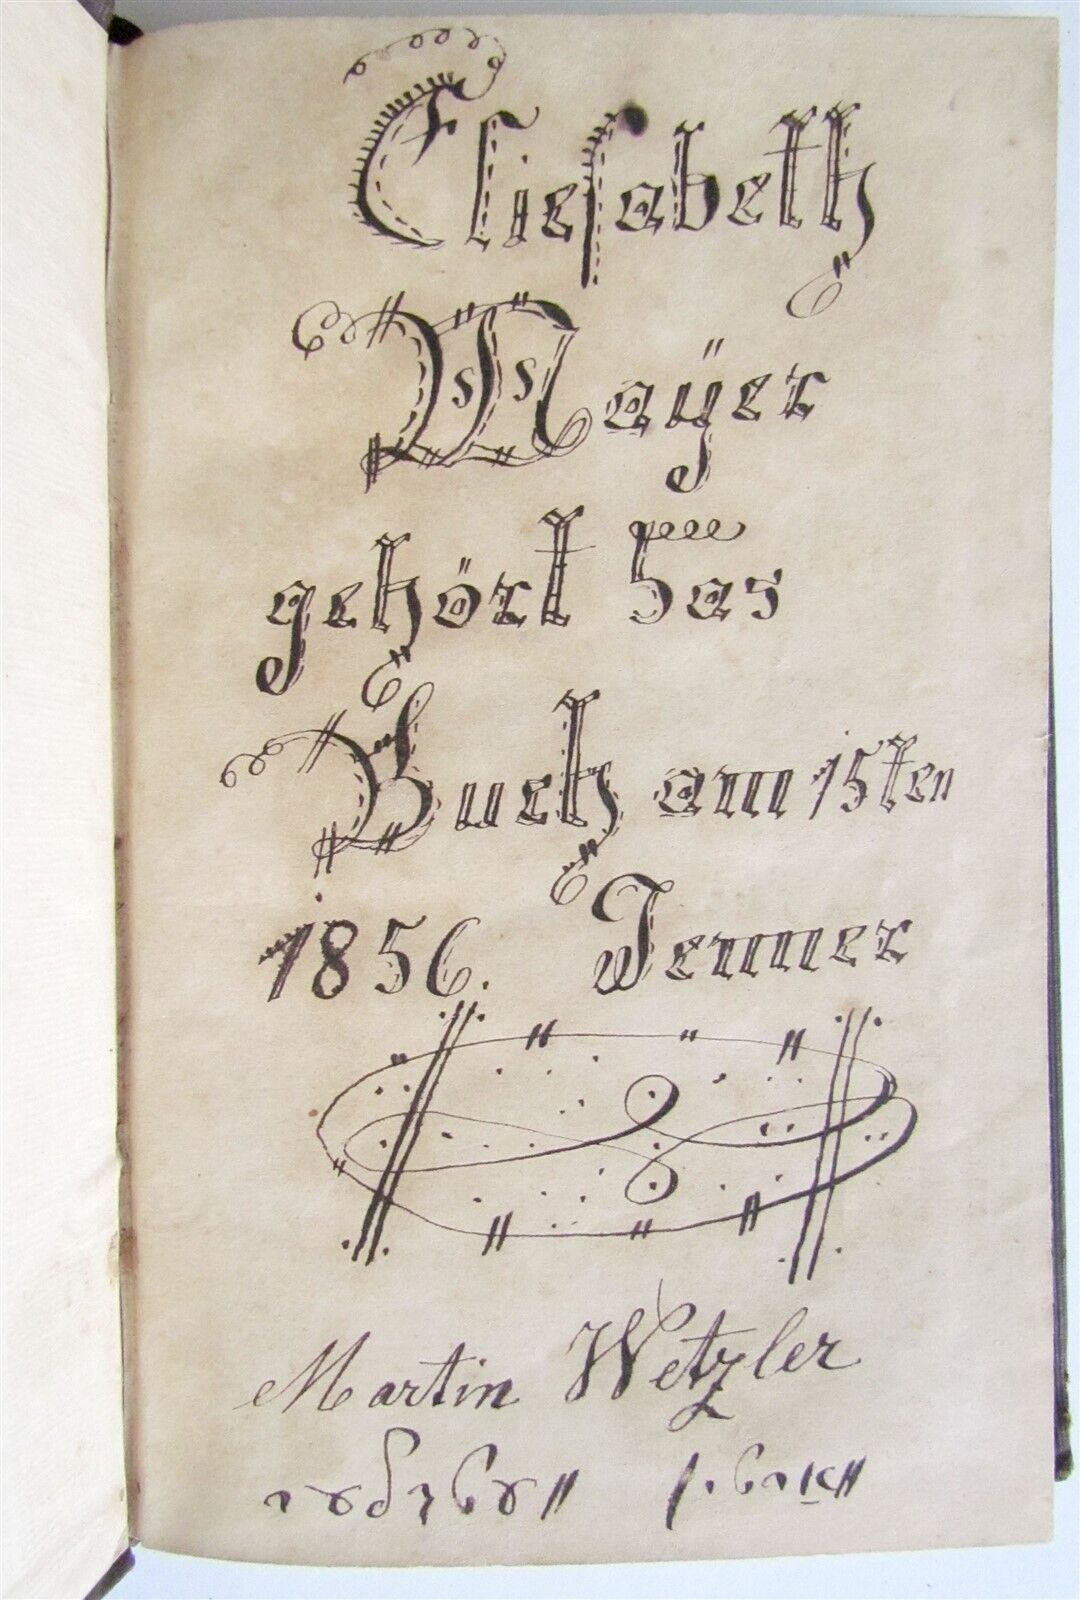 Eliesabeth
Maÿer
gehört das
Buch am 15ten
1856. Jenner
Martin Wetzler